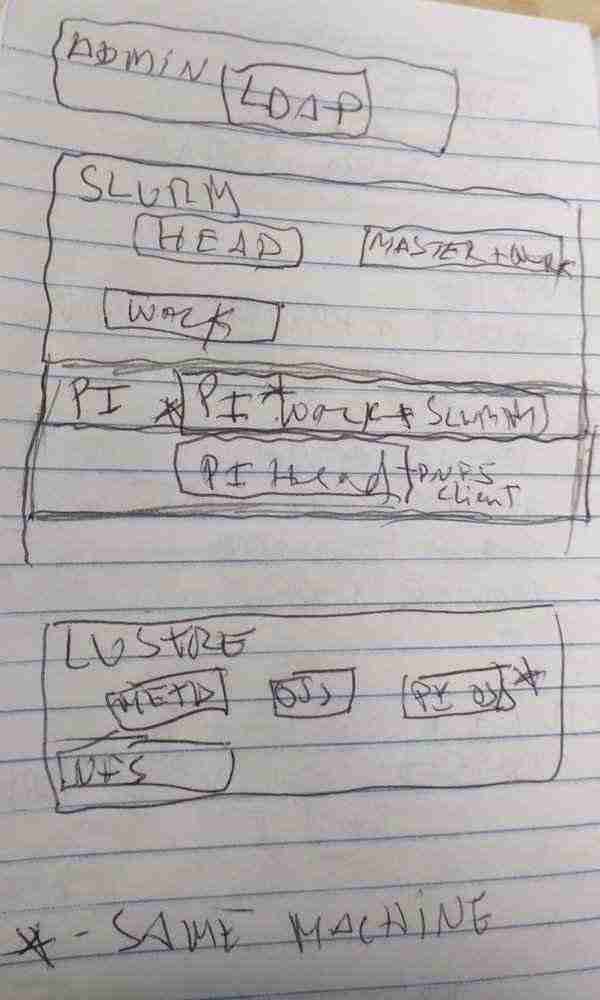 ADMIN LDAP
SLURM
HEAD MASTER + WORK
WORK
PI * PI WORK + SLURM
PI Head + PNFS
client
LUSTRE
META OSS PI OSS *
NFS
* - SAME MACHINE